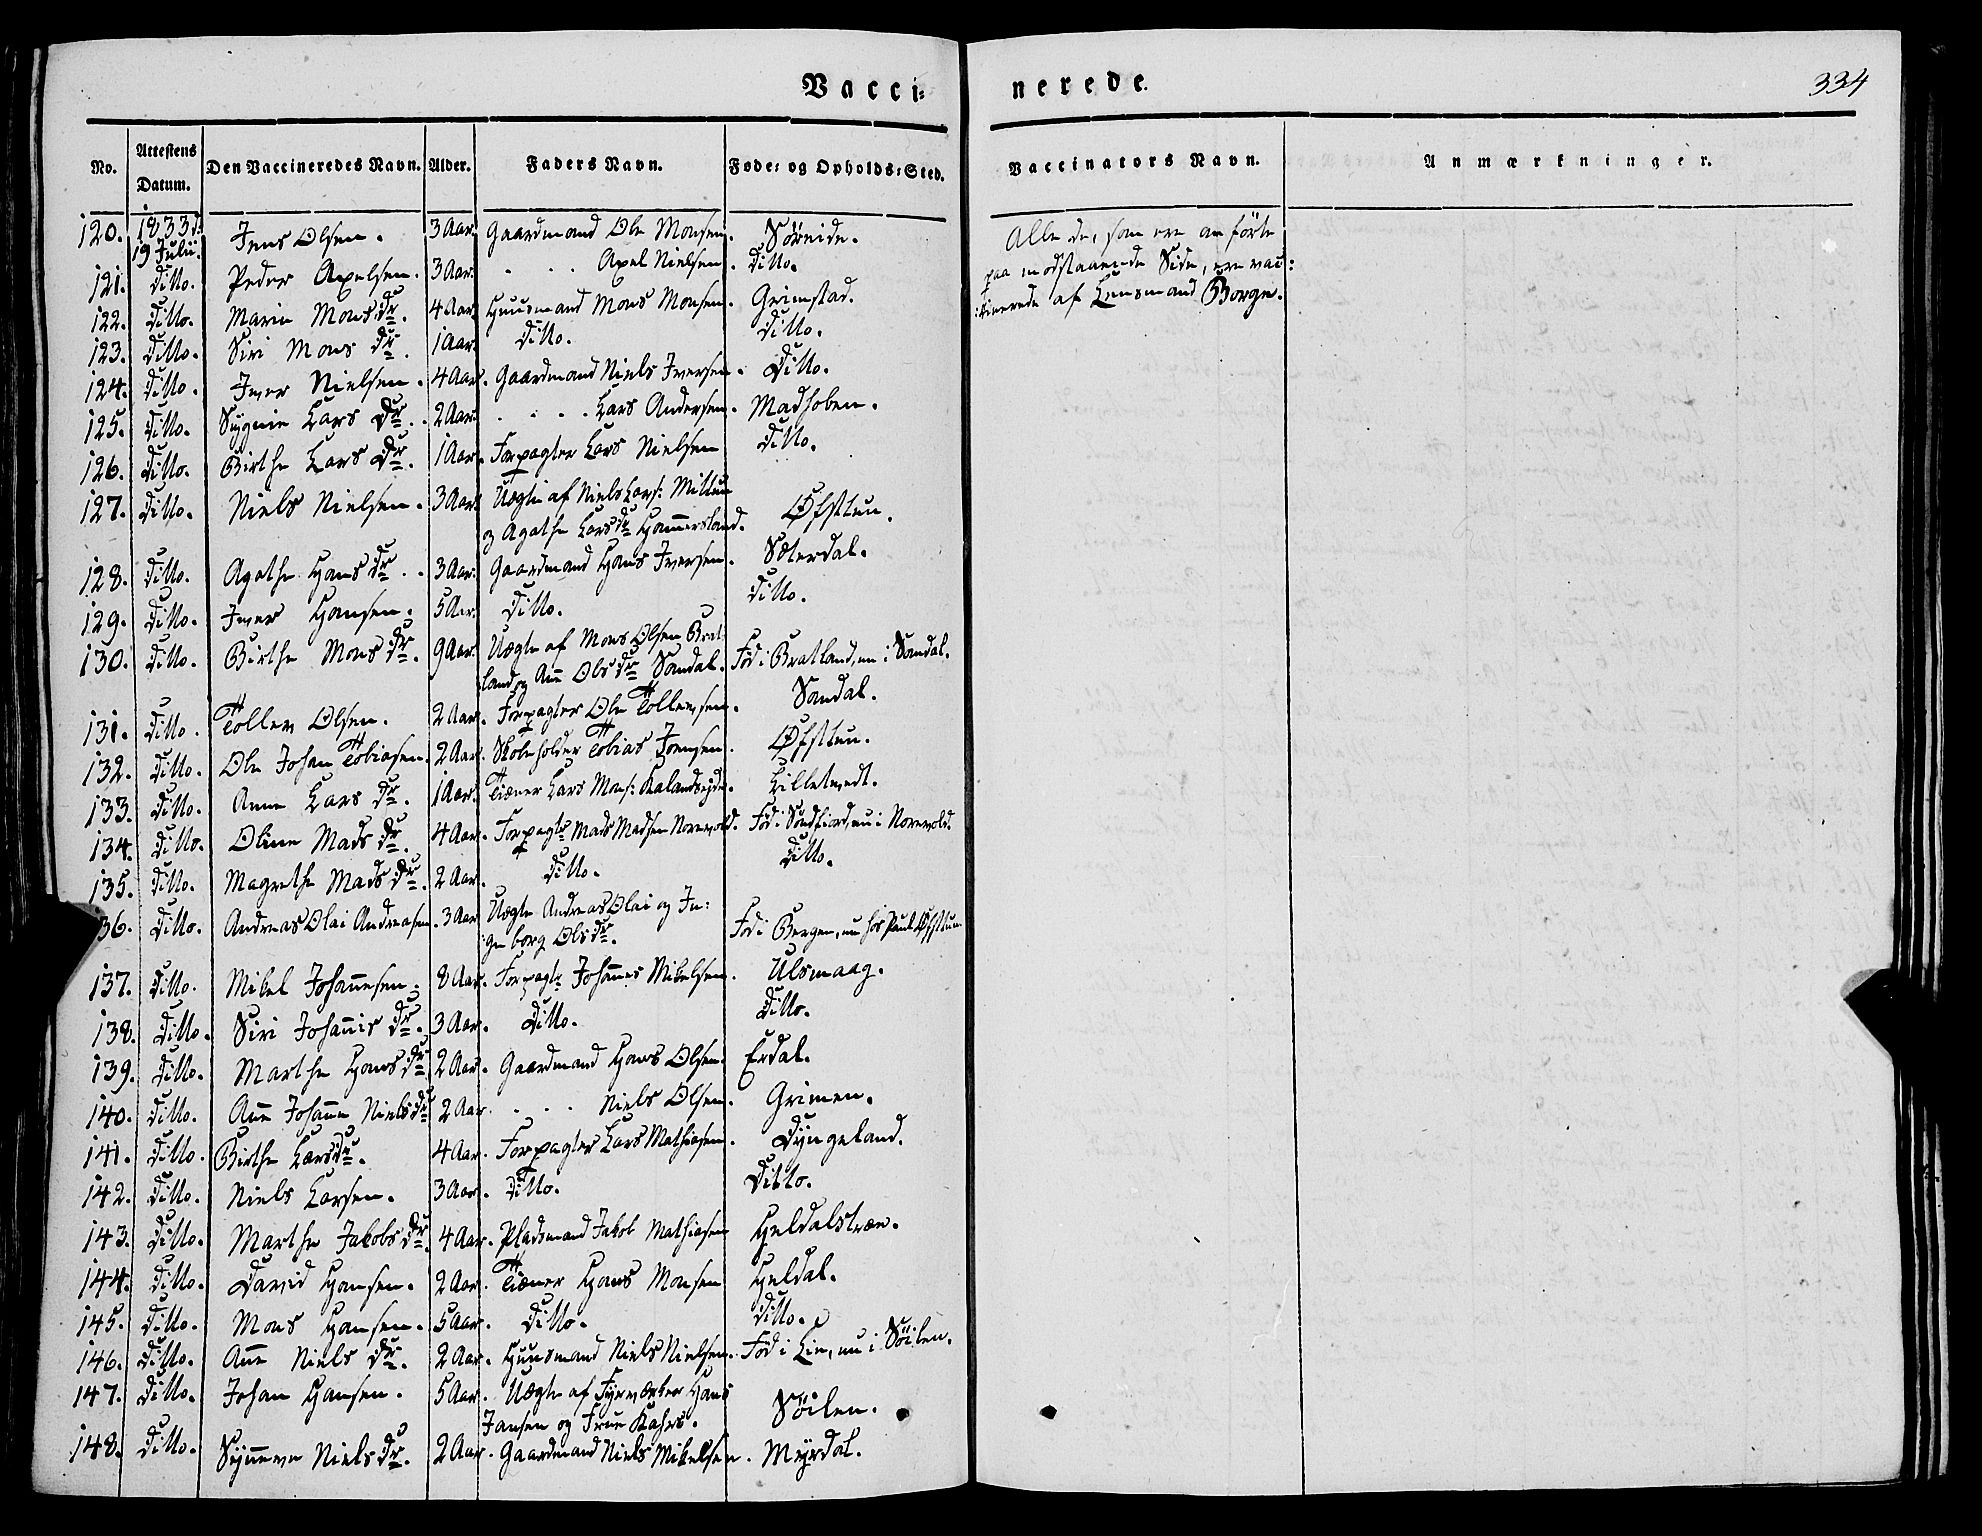 Vacci=
nerede.
334
No. Attestens Datum. Den Vaccineredes Navn. Alder. Faders Navn. Føde= og Opholds=Sted.
Vaccinators Navn. Anmærkninger.
120. 1833 d. 19 Julii. Jens Olsen. 3 Aar. Gaardmand Ole Monsen. Søreide.
121. Ditto. Peder Axelsen. 3 Aar. . . . Axel Nielsen. Ditto.
122. Ditto. Marie Mons Dr. 4 Aar. Huusmand Mons Monsen. Grimstad.
123. Ditto. Siri Mons Dr. 1 Aar. Ditto. Ditto.
124. Ditto. Iver Nielsen. 4 Aar. Gaardmand Niels Iversen. Ditto.
125. Ditto. Lars Dr. 2 Aar. . . . Lars Andersen. Madhoben.
126. Ditto. Birthe Lars Dr. 1 Aar. Forpagter Lars Nielsen Ditto.
127. Ditto. Niels Nielsen. 3 Aar. Uægte af Niels Lars: Mittun
og Agathe Lars Dr Hammersland. Øfsttun.
128. Ditto. Agathe Hans Dr. . 3 Aar. Gaardmand Hans Iversen. Sæterdal.
129. Ditto. Iver Hansen. 5 Aar. Ditto. Ditto.
130. Ditto. Birthe Mons Dr. 9 Aar. Uægte af Mons Olsen Brat=
land og Añe Ols Dr Sandal. Fød i Bratland, nu i Sandal.
131. Ditto. Tollev Olsen. 2 Aar. Forpagter Ole Tollevsen. Sandal.
132. Ditto. Ole Johan Tobiasen. 2 Aar. Skoleholder Tobias Joensen. Øfsttun.
133. Ditto. Anne Lars Dr. 1 Aar. Tiæner Lars Mons: Kalandseyde. Lilletvedt.
134. Ditto. Oline Mads Dr. 4 Aar. Forpagtr Mads Madsen Norevold. Fød i Søndfiord, nu i Norevold.
135. Ditto. Magrethe Mads Dr. 2 Aar. Ditto. Ditto.
136. Ditto. Andreas Olai Andreasen. 3 Aar Uægte Andreas Olai og In=
geborg Ols Dr. Fød i Bergen, nu hos Paul Øfsttun
137. Ditto. Mikel Johañesen. 8 Aar. Forpagtr Johañes Mikelsen. Ulsmaag.
138. Ditto. Siri Johañis Dr. 3 Aar. Ditto. Ditto.
139. Ditto. Marthe Hans Dr 2 Aar. Gaardmand Hans Olsen. Erdal.
140. Ditto. Añe Johañe Niels Dr 2 Aar. . . . Niels Olsen. Grimen.
141. Ditto. Birthe Lars Dr. 4 Aar. Forpagter Lars Mathiasen. Dyngeland.
142. Ditto. Niels Larsen. 3 Aar. Ditto. Ditto.
143. Ditto. Marthe Jakobs Dr. 4 Aar. Pladsmand Jakob Mathiasen Heldalstræe.
144. Ditto. David Hansen. 2 Aar. Tiæner Hans Monsen Heldal.
145. Ditto. Mons Hansen. 5 Aar. Ditto. Ditto.
146. Ditto. Añe Niels Dr. 2 Aar. Huusmand Niels Nielsen. Fød i Lie, nu i Søilen.
147. Ditto. Johan Hansen. 5 Aar. Uægte af Fyrværker Hans
Jansen og Frue Kahrs. Søilen.
148. Ditto. Syñeve Niels Dr. 2 Aar. Gaardmand Niels Mikelsen. Myrdal.
Alle de, som ere anførte
paa modstaaende Side, ere vac=
:cinerede af Lensmand Borge.